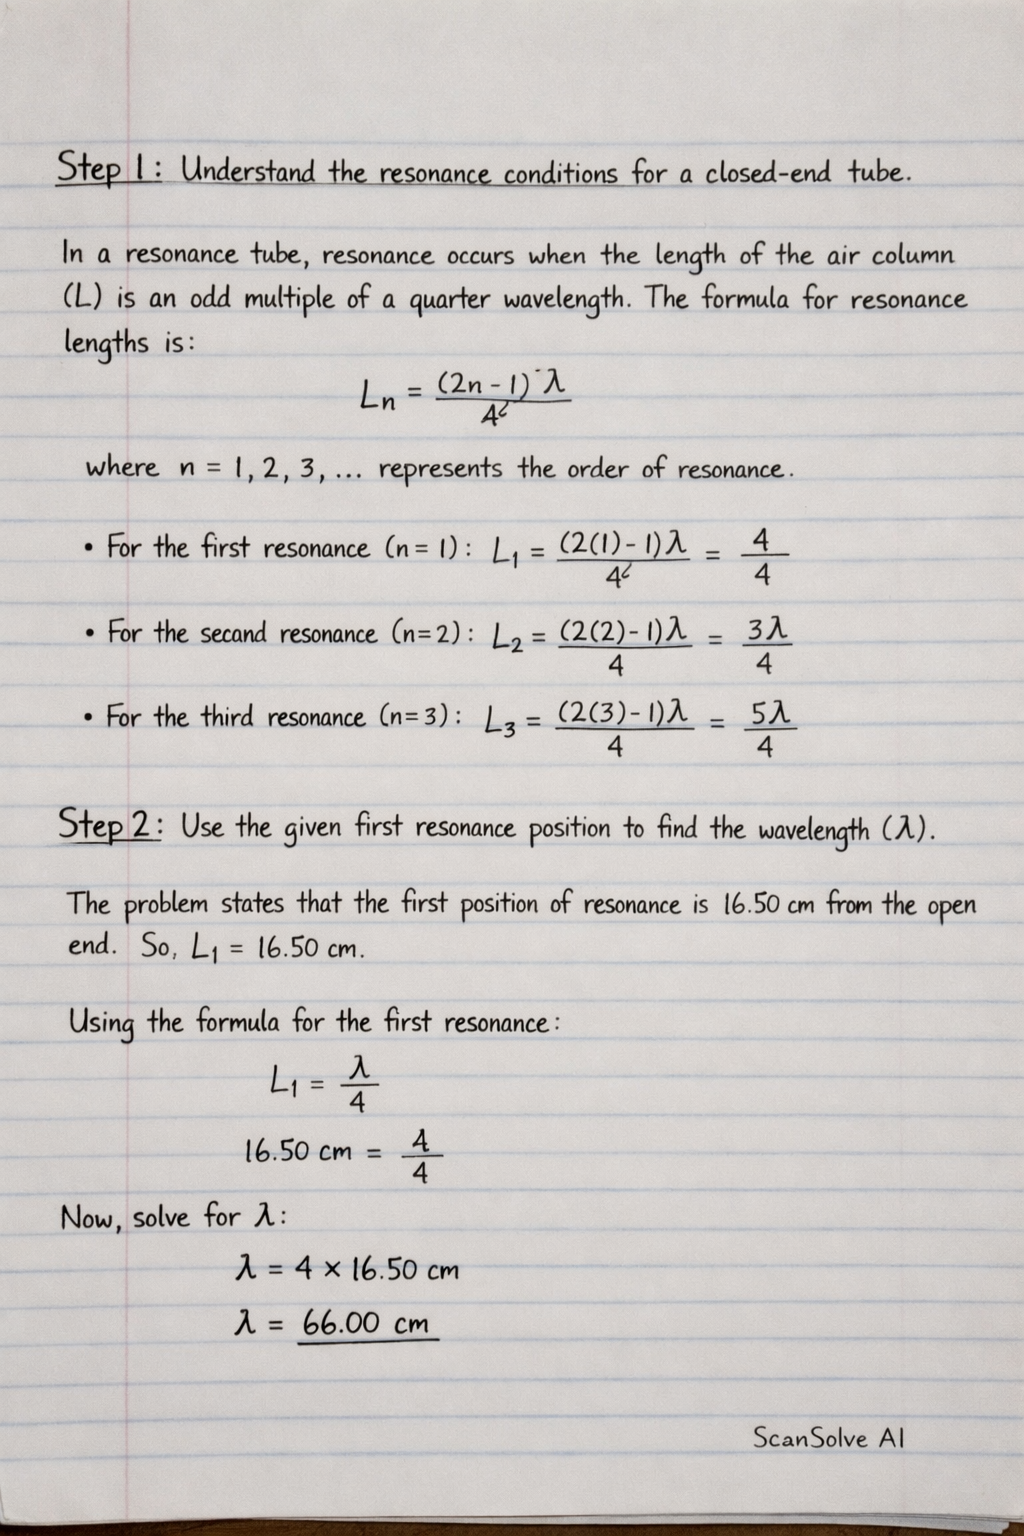 Step 1: Understand the resonance conditions for a closed-end tube.
In a resonance tube, resonance occurs when the length of the air column
(L) is an odd multiple of a quarter wavelength. The formula for resonance
lengths is:
Lₙ = (2n - 1) λ / 4
where n = 1, 2, 3, ... represents the order of resonance.
• For the first resonance (n = 1): L₁ = (2(1) - 1)λ / 4 = 4 / 4
• For the second resonance (n=2): L₂ = (2(2) - 1)λ / 4 = 3λ / 4
• For the third resonance (n=3): L₃ = (2(3) - 1)λ / 4 = 5λ / 4
Step 2: Use the given first resonance position to find the wavelength (λ).
The problem states that the first position of resonance is 16.50 cm from the open
end. So, L₁ = 16.50 cm.
Using the formula for the first resonance:
L₁ = λ / 4
16.50 cm = 4 / 4
Now, solve for λ:
λ = 4 × 16.50 cm
λ = 66.00 cm
ScanSolve AI